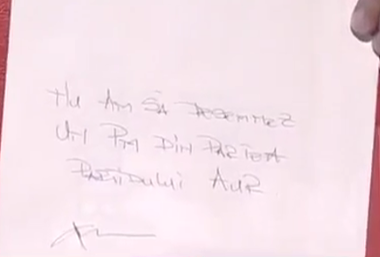 Nu am să desemnez
un PM din partea
Partidului AUR